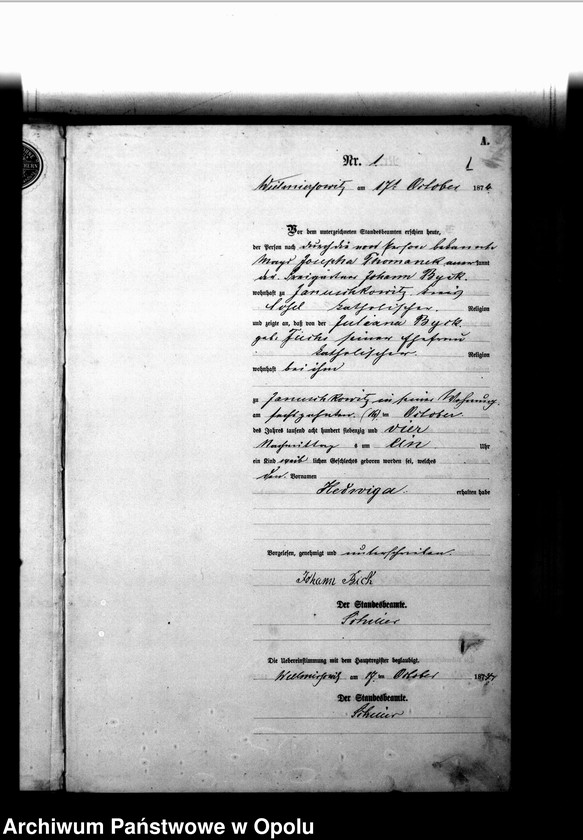 A.
Nr. 1.
Wielmierzowitz am 17t October 1874.
Vor dem unterzeichneten Standesbeamten erschien heute,
der Person nach durch die von Person bekannte
Magd Josepha Thomanek anerkannt
der Freigärtner Johann Byck.
wohnhaft zu Januschkowitz Kreis
Cosel katholischer Religion
und zeigte an, daß von der Juliana Byck
geb. Fuchs seiner Ehefrau
katholischer Religion
wohnhaft bei ihm
zu Januschkowitz in seiner Wohnung.
am sechszehnten (16) ten October
des Jahres tausend acht hundert siebenzig und vier
Nachmittag s um Ein Uhr
ein Kind weib lichen Geschlechts geboren worden sei, welches
den Vornamen
Hedwiga erhalten habe
Vorgelesen, genehmigt und unterschrieben.
Johann Bick
Der Standesbeamte.
Die Uebereinstimmung mit dem Hauptregister beglaubigt.
Wielmierzowitz am 17. ten October 1874
Der Standesbeamte.
Archiwum Państwowe w Opolu